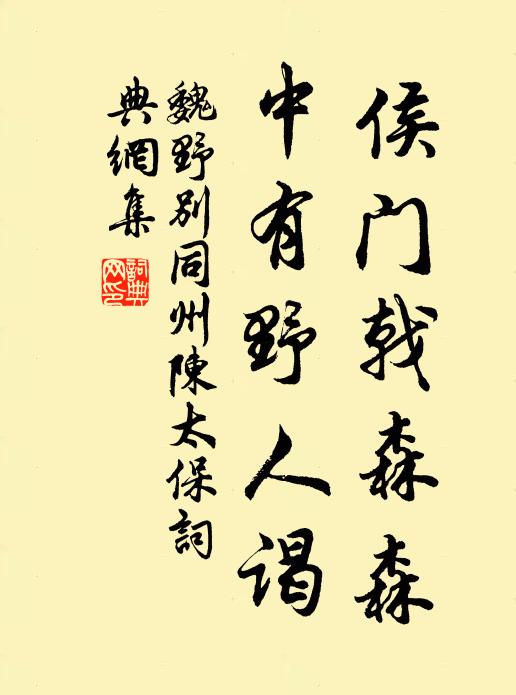 侯门戟森森
中有野人谒
魏野别同州陳太保詞
典網集
詞典網印